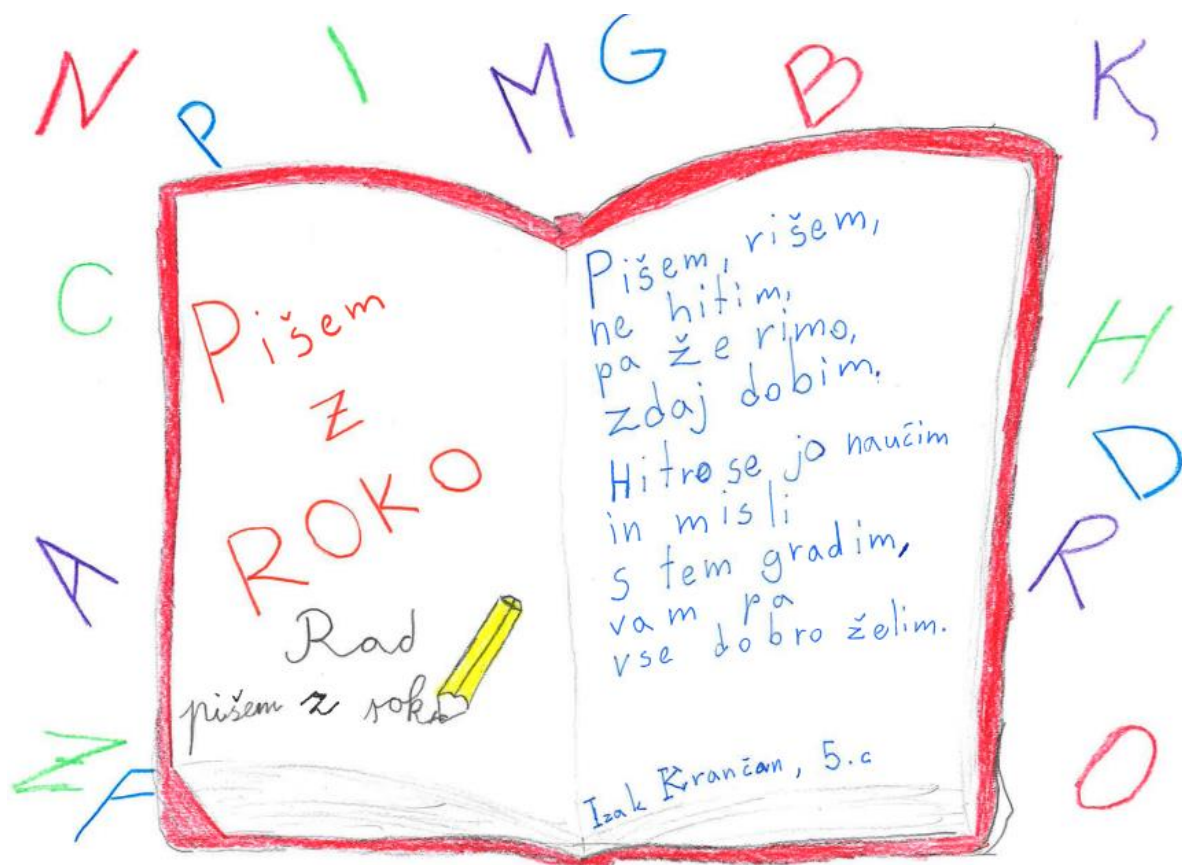 N I M G B K
P
C
A
Z
F
Pišem
z
ROKO
Rad
pišem z roko
Pišem, rišem,
ne hitim,
pa že rimo,
zdaj dobim.
Hitro se jo naučim
in misli
s tem gradim,
vam pa
vse dobro želim.
Izak Krančan, 5.c
H
D
R
O